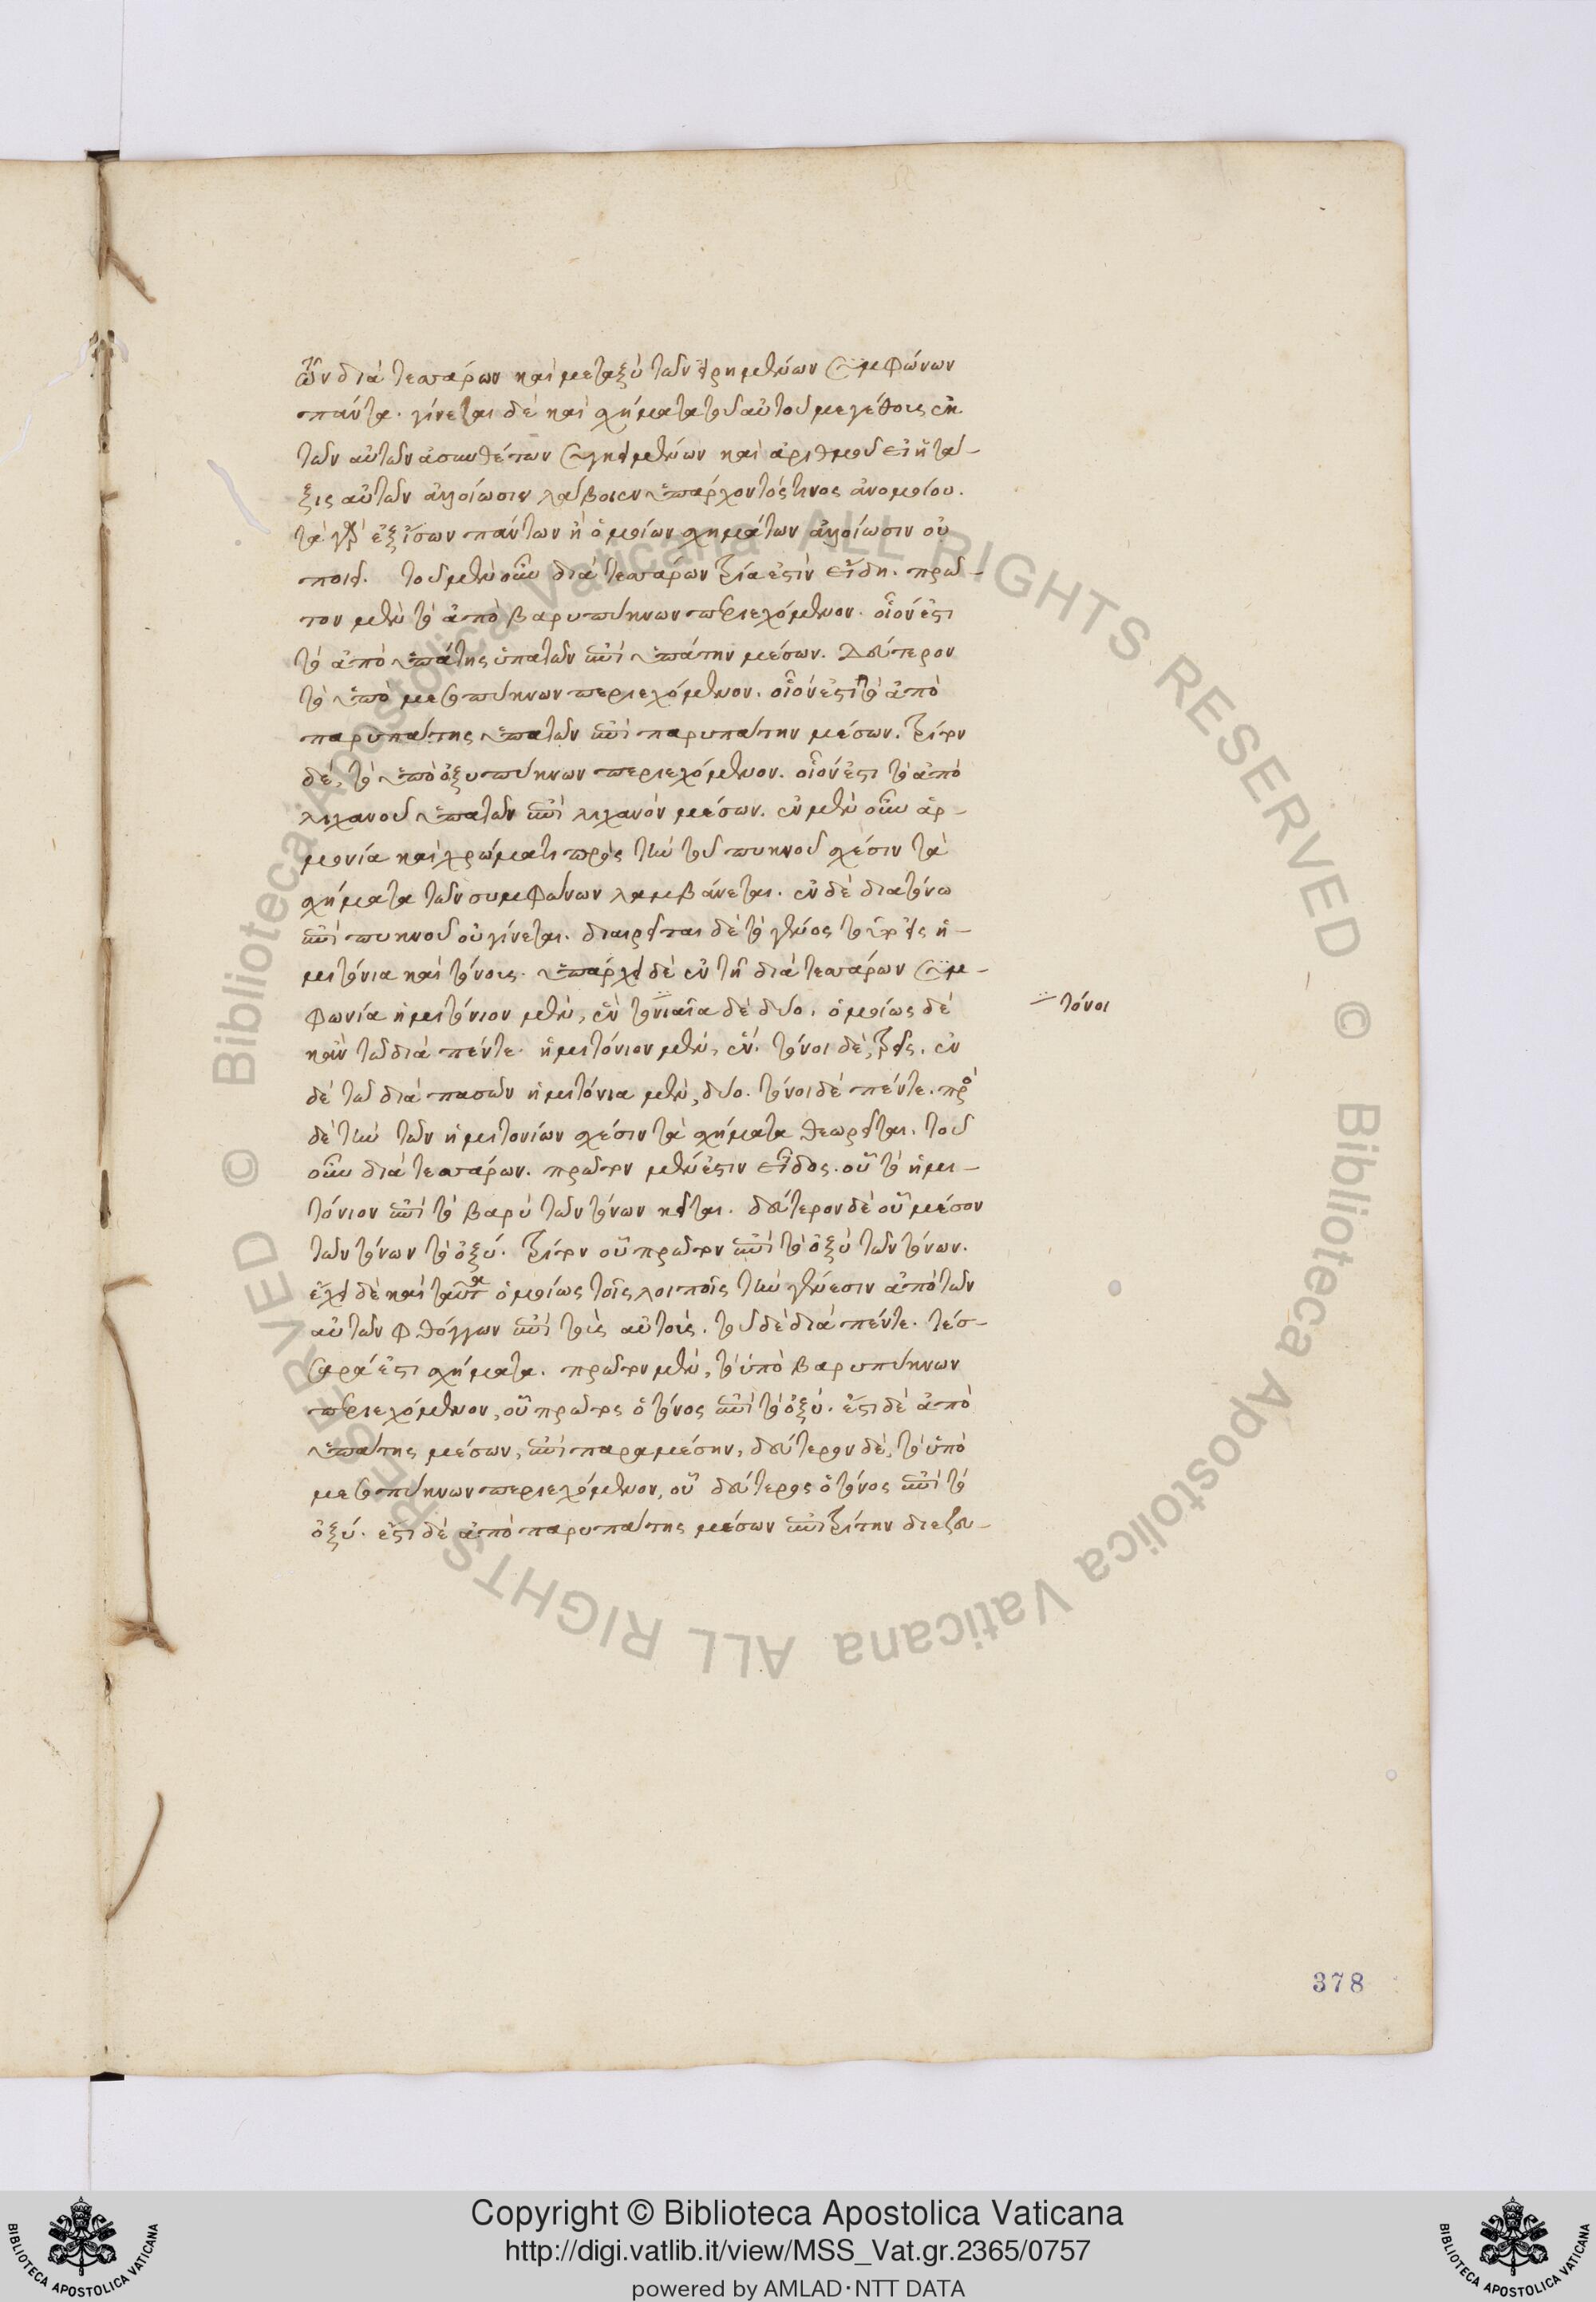 ὧν διὰ τεσσάρων καὶ μεταξὺ τῶν εἰρημένων συμφώνων
πάντα. γίνεται δὲ καὶ σχήματα τοῦ αὐτοῦ μεγέθους ἐκ
τῶν αὐτῶν ἀσυνθέτων συγκειμένων καὶ ἀριθμοῦ εἰ ἡ τά-
ξις αὐτῶν ἀλλοίωσιν λάβοι ἐν ὑπάρχοντός τινος ἀνομοίου.
τὰ γὰρ ἐξ ἴσων πάντων ἢ ὁμοίων σχημάτων ἀλλοίωσιν οὐ
ποιεῖ. τοῦ μὲν οὖν διὰ τεσσάρων τρία ἐστὶν εἴδη. πρῶ-
τον μὲν τὸ ἀπὸ βαρυπύκνων περιεχόμενον. οἷον ἐστι
τὸ ἀπὸ ὑπάτης ὑπατῶν ἐπὶ ὑπάτην μέσων. Δεύτερον
τὸ ὑπὸ μεσοπύκνων περιεχόμενον. οἷόν ἐστι τὸ ἀπὸ
παρυπάτης ὑπατῶν ἐπὶ παρυπάτην μέσων. τρίτον
δέ, τὸ ὑπὸ ὀξυπύκνων περιεχόμενον. οἷόν ἐστι τὸ ἀπὸ
λιχανοῦ ὑπατῶν ἐπὶ λιχανὸν μέσων. ἐν μὲν οὖν ἁρ-
μονία καὶ χρώματι πρὸς τὴν τοῦ πυκνοῦ σχέσιν τὰ
σχήματα τῶν συμφώνων λαμβάνεται. ἐν δὲ διατόνω
ἐπὶ πυκνοῦ οὐ γίνεται. διαιρεῖται δὲ τὸ γένος τοῦτο εἰς ἡ-
μιτόνια καὶ τόνους. ὑπάρχει δὲ ἐν τῆ διὰ τεσσάρων συμ-
φωνία ἡμιτόνιον μὲν, ἓν τονιαῖα δὲ δύο. ὁμοίως δὲ
κἀν τῶ διὰ πέντε. ἡμιτόνιον μὲν, ἕν. τόνοι δὲ, τρεῖς. ἐν
δὲ τῶ διὰ πασῶν ἡμιτόνια μὲν, δύο. τόνοι δὲ πέντε. πρὸς
δὲ τὴν τῶν ἡμιτονίων σχέσιν τὰ σχήματα θεωρεῖται. τοῦ
οὖν διὰ τεσσάρων. πρῶτον μὲν ἐστιν εἶδος. οὗ τὸ ἡμι-
τόνιον ἐπὶ τὸ βαρὺ τῶν τόνων κεῖται. δεύτερον δὲ οὗ μέσον
τῶν τόνων τὸ ὀξύ. τρίτον οὗ πρῶτον ἐπὶ τὸ ὀξὺ τῶν τόνων.
ἔχει δὲ καὶ ταῦτα ὁμοίως τοῖς λοιποῖς τὴν γένεσιν ἀπὸ τῶν
αὐτῶν φθόγγων ἐπὶ τοὺς αὐτούς. τοῦ δὲ διὰ πέντε. τέσ-
σαρά ἐστι σχήματα. πρῶτον μὲν, τὸ ὑπὸ βαρυπύκνων
περιεχόμενον, οὗ πρῶτος ὁ τόνος ἐπὶ τὸ ὀξύ. ἔστι δὲ ἀπὸ
ὑπάτης μέσων, ἐπὶ παραμέσην, δεύτερον δὲ, τὸ ὑπὸ
μεσοπύκνων περιεχόμενον, οὗ δεύτερος ὁ τόνος ἐπὶ τὸ
ὀξύ. ἔστι δὲ ἀπὸ παρυπάτης μέσων ἐπὶ τρίτην διεζευ-
τόνοι
378
Copyright © Biblioteca Apostolica Vaticana
http://digi.vatlib.it/view/MSS_Vat.gr.2365/0757
powered by AMLAD·NTT DATA